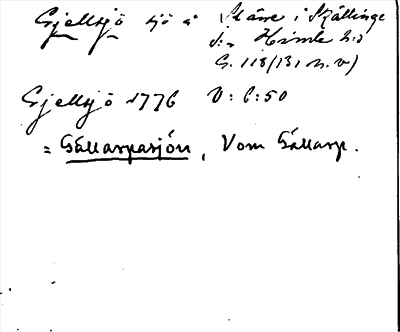 Gjellsjö sjö å Stärre i Skällinge
s:n Himle h:d
G. 118/131 n. v)
Gjellsjö 1776 V: 6: 50
= Gällarpasjön, Vom Gällarp.